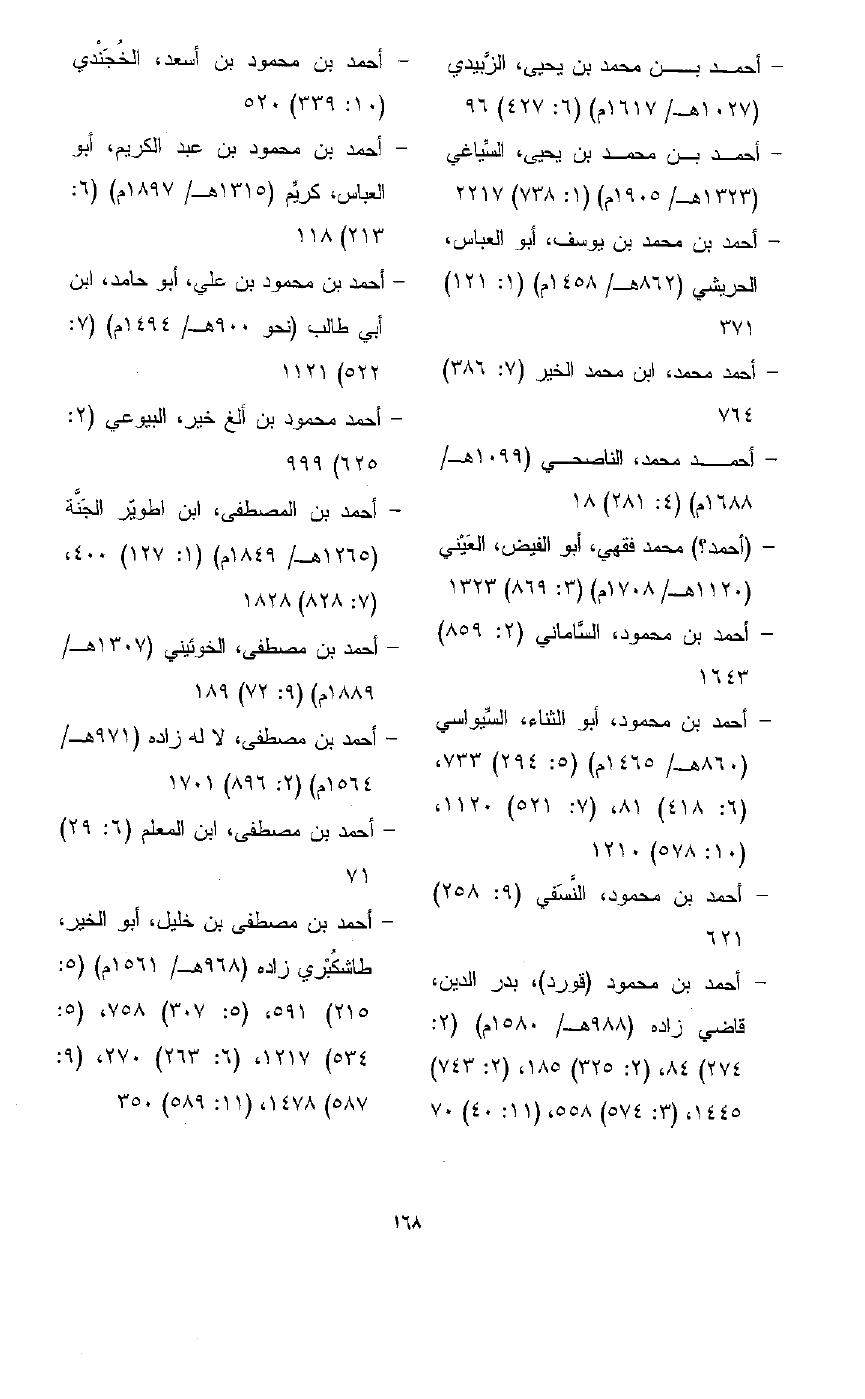 - أحمد بن محمد بن يحيى، الزَّبيدي
(١٠٢٧هـ/ ١٦١٧م) (٦: ٤٢٧) ٩٦
- أحمد بن محمد بن يحيى، السِّياغي
(١٣٢٣هـ/ ١٩٠٥م) (١: ٧٣٨) ٢٢١٧
- أحمد بن محمد بن يوسف، أبو العباس،
الحريشي (٨٦٢هـ/ ١٤٥٨م) (١: ١٢١)
٣٧١
- أحمد محمد، ابن محمد الخير (٧: ٣٨٦)
٧٦٤
- أحمد محمد، الناصحي (١٠٩٩هـ/
١٦٨٨م) (٤: ٢٨١) ١٨
- (أحمد؟) محمد فقهي، أبو الفيض، العَيْني
(١١٢٠هـ/ ١٧٠٨م) (٣: ٨٦٩) ١٣٢٣
- أحمد بن محمود، السَّاماني (٢: ٨٥٩)
١٦٤٣
- أحمد بن محمود، أبو الثناء، السِّيواسي
(٨٦٠هـ/ ١٤٦٥م) (٥: ٢٩٤) ٧٣٣،
(٦: ٤١٨) ٨١، (٧: ٥٢١) ١١٢٠،
(١٠: ٥٧٨) ١٢١٠
- أحمد بن محمود، النَّسَفي (٩: ٢٥٨)
٦٢١
- أحمد بن محمود (قورد)، بدر الدين،
قاضي زاده (٩٨٨هـ/ ١٥٨٠م) (٢:
٢٧٤) ٨٤، (٢: ٣٢٥) ١٨٥، (٢: ٧٤٣)
١٤٤٥، (٣: ٥٧٤) ٥٥٨، (١١: ٤٠) ٧٠
- أحمد بن محمود بن أسعد، الخُجَنْدي
(١٠: ٣٣٩) ٥٢٠
- أحمد بن محمود بن عبد الكريم، أبو
العباس، كريِّم (١٣١٥هـ/ ١٨٩٧م) (٦:
٢١٣) ١١٨
- أحمد بن محمود بن علي، أبو حامد، ابن
أبي طالب (نحو ٩٠٠هـ/ ١٤٩٤م) (٧:
٥٢٢) ١١٢١
- أحمد محمود بن ألغ خير، البيوعي (٢:
٦٢٥) ٩٩٩
- أحمد بن المصطفى، ابن اطويّر الجَنَّة
(١٢٦٥هـ/ ١٨٤٩م) (١: ١٢٧) ٤٠٠،
(٧: ٨٢٨) ١٨٢٨
- أحمد بن مصطفى، الخوئيني (١٣٠٧هـ/
١٨٨٩م) (٩: ٧٢) ١٨٩
- أحمد بن مصطفى، لا له زاده (٩٧١هـ/
١٥٦٤م) (٢: ٨٩٦) ١٧٠١
- أحمد بن مصطفى، ابن المعلم (٦: ٢٩)
٧١
- أحمد بن مصطفى بن خليل، أبو الخير،
طاشكُبْري زاده (٩٦٨هـ/ ١٥٦١م) (٥:
٢١٥) ٥٩١، (٥: ٣٠٧) ٧٥٨، (٥:
٥٣٤) ١٢١٧، (٦: ٢٦٣) ٢٧٠، (٩:
٥٨٧) ١٤٧٨، (١١: ٥٨٩) ٣٥٠
١٦٨